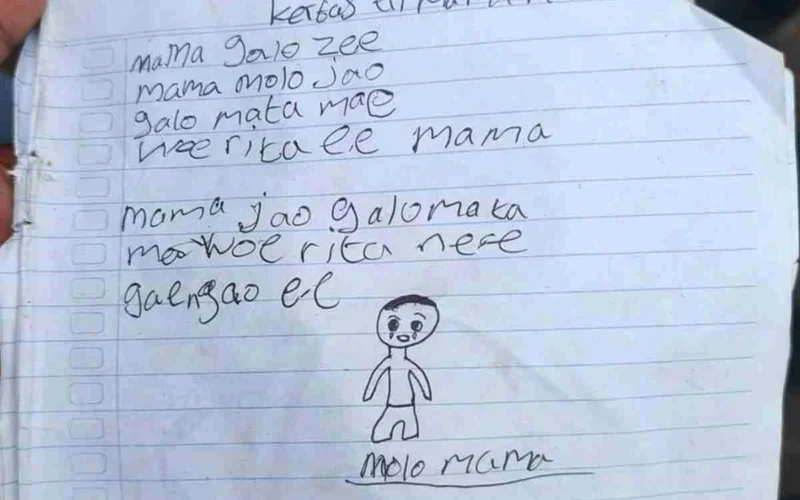 mama galo zee
mama molo jao
galo mata mae
woe rita e.e mama
mama jao galo mata
mae woe rita ne-e
gae ngao e-e
molo mama